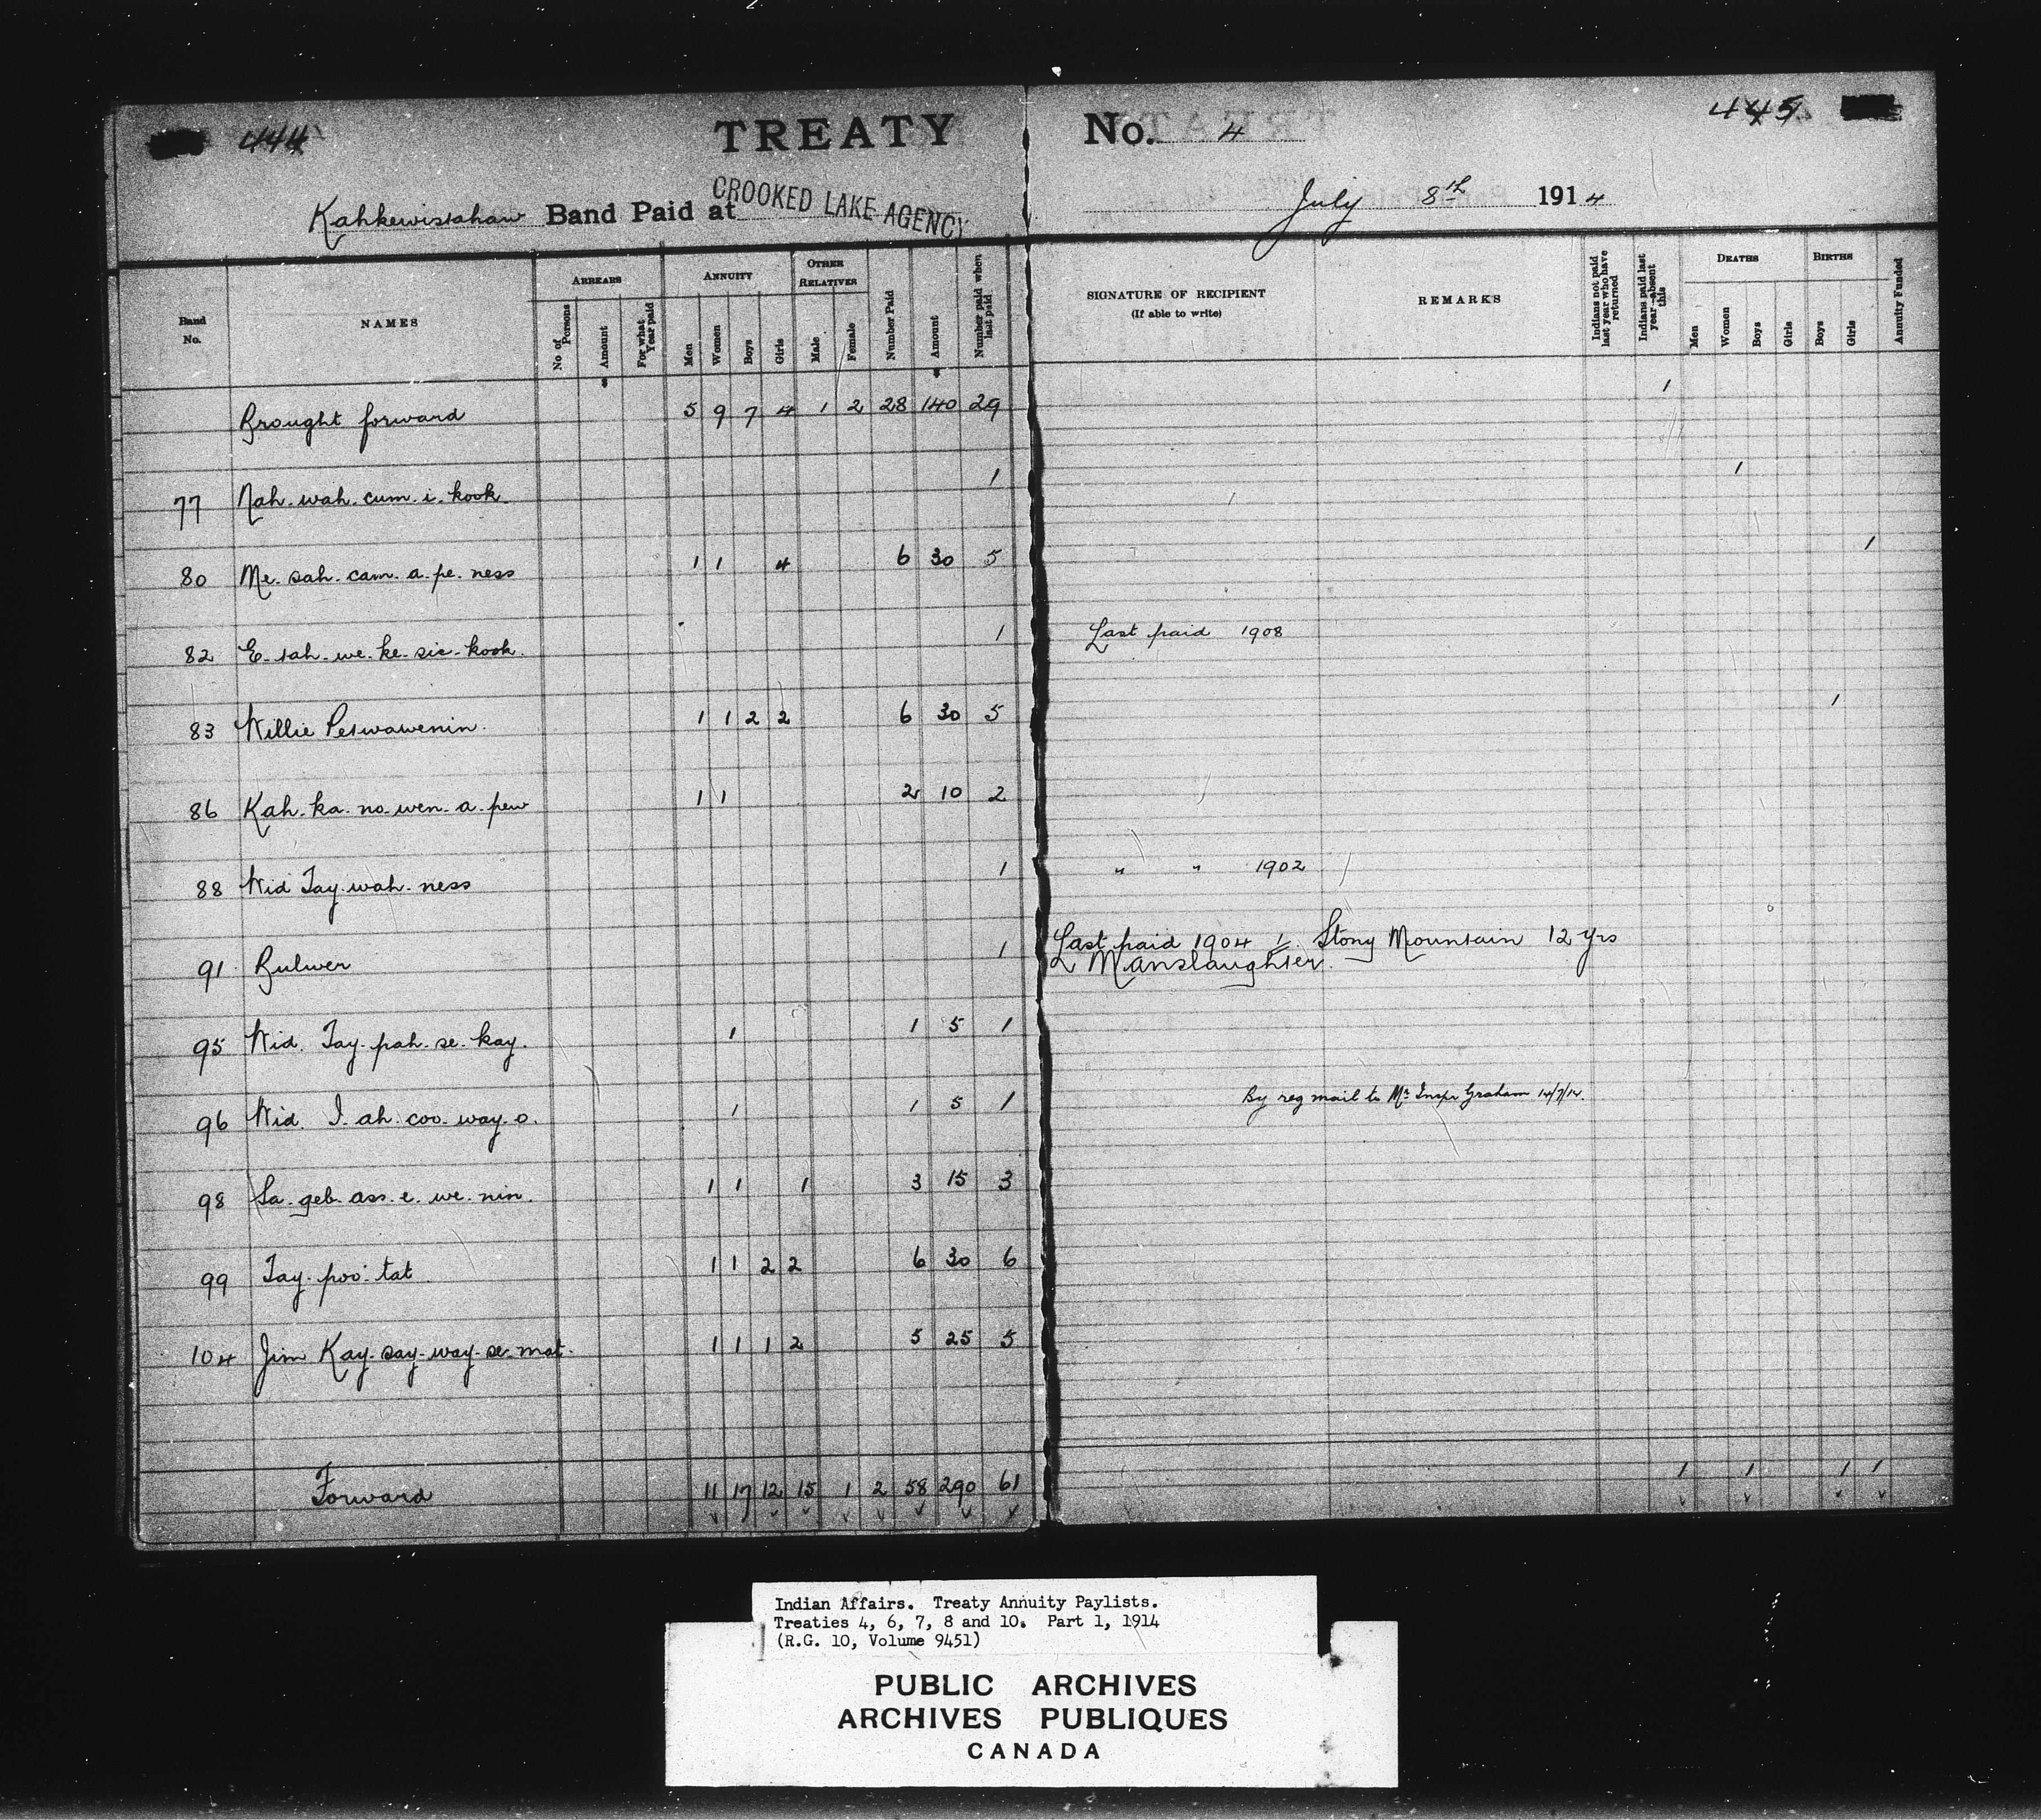 444 TREATY No. 4 445
Kahkewistahaw Band Paid at CROOKED LAKE AGENCY July 8th 1914
Band No. NAMES ARREARS No of Persons Amount For what Year paid ANNUITY Men Women Boys Girls OTHER RELATIVES Male Female Number Paid Amount Number paid when last paid SIGNATURE OF RECIPIENT (If able to write) REMARKS Indians not paid last year who have returned Indians paid last year—absent this DEATHS Men Women Boys Girls BIRTHS Boys Girls Annuity Funded
Brought forward 5 9 7 4 1 2 28 140 29 1
77 Nah-wah-cum-i-kook 1 1
80 Me-sah-cam-a-pe-ness 1 1 4 6 30 5 1
82 E-tah-we-ke-sic-kook. 1 Last paid 1908
83 Willie Petwawenin. 1 1 2 2 6 30 5 1
86 Kah-ka-no-wen-a-pew 1 1 2 10 2
88 Wid Tay-wah-ness 1 " " 1902
91 Bulwer 1 Last paid 1904 Stony Mountain 12 yrs
Manslaughter.
95 Wid. Tay-pah-se-kay. 1 1 5 1
96 Wid. I-ah-coo-way-o. 1 1 5 1 By reg mail to Mr Inspr Graham 14/7/14.
98 Sa-geb-ass-e-we-nin. 1 1 1 3 15 3
99 Tay-poo-tat 1 1 2 2 6 30 6
104 Jim Kay-say-way-se-mat. 1 1 1 2 5 25 5
Forward 11 17 12 15 1 2 58 290 61 1 1 1 1
Indian Affairs. Treaty Annuity Paylists.
Treaties 4, 6, 7, 8 and 10. Part 1, 1914
(R.G. 10, Volume 9451)
PUBLIC ARCHIVES
ARCHIVES PUBLIQUES
CANADA